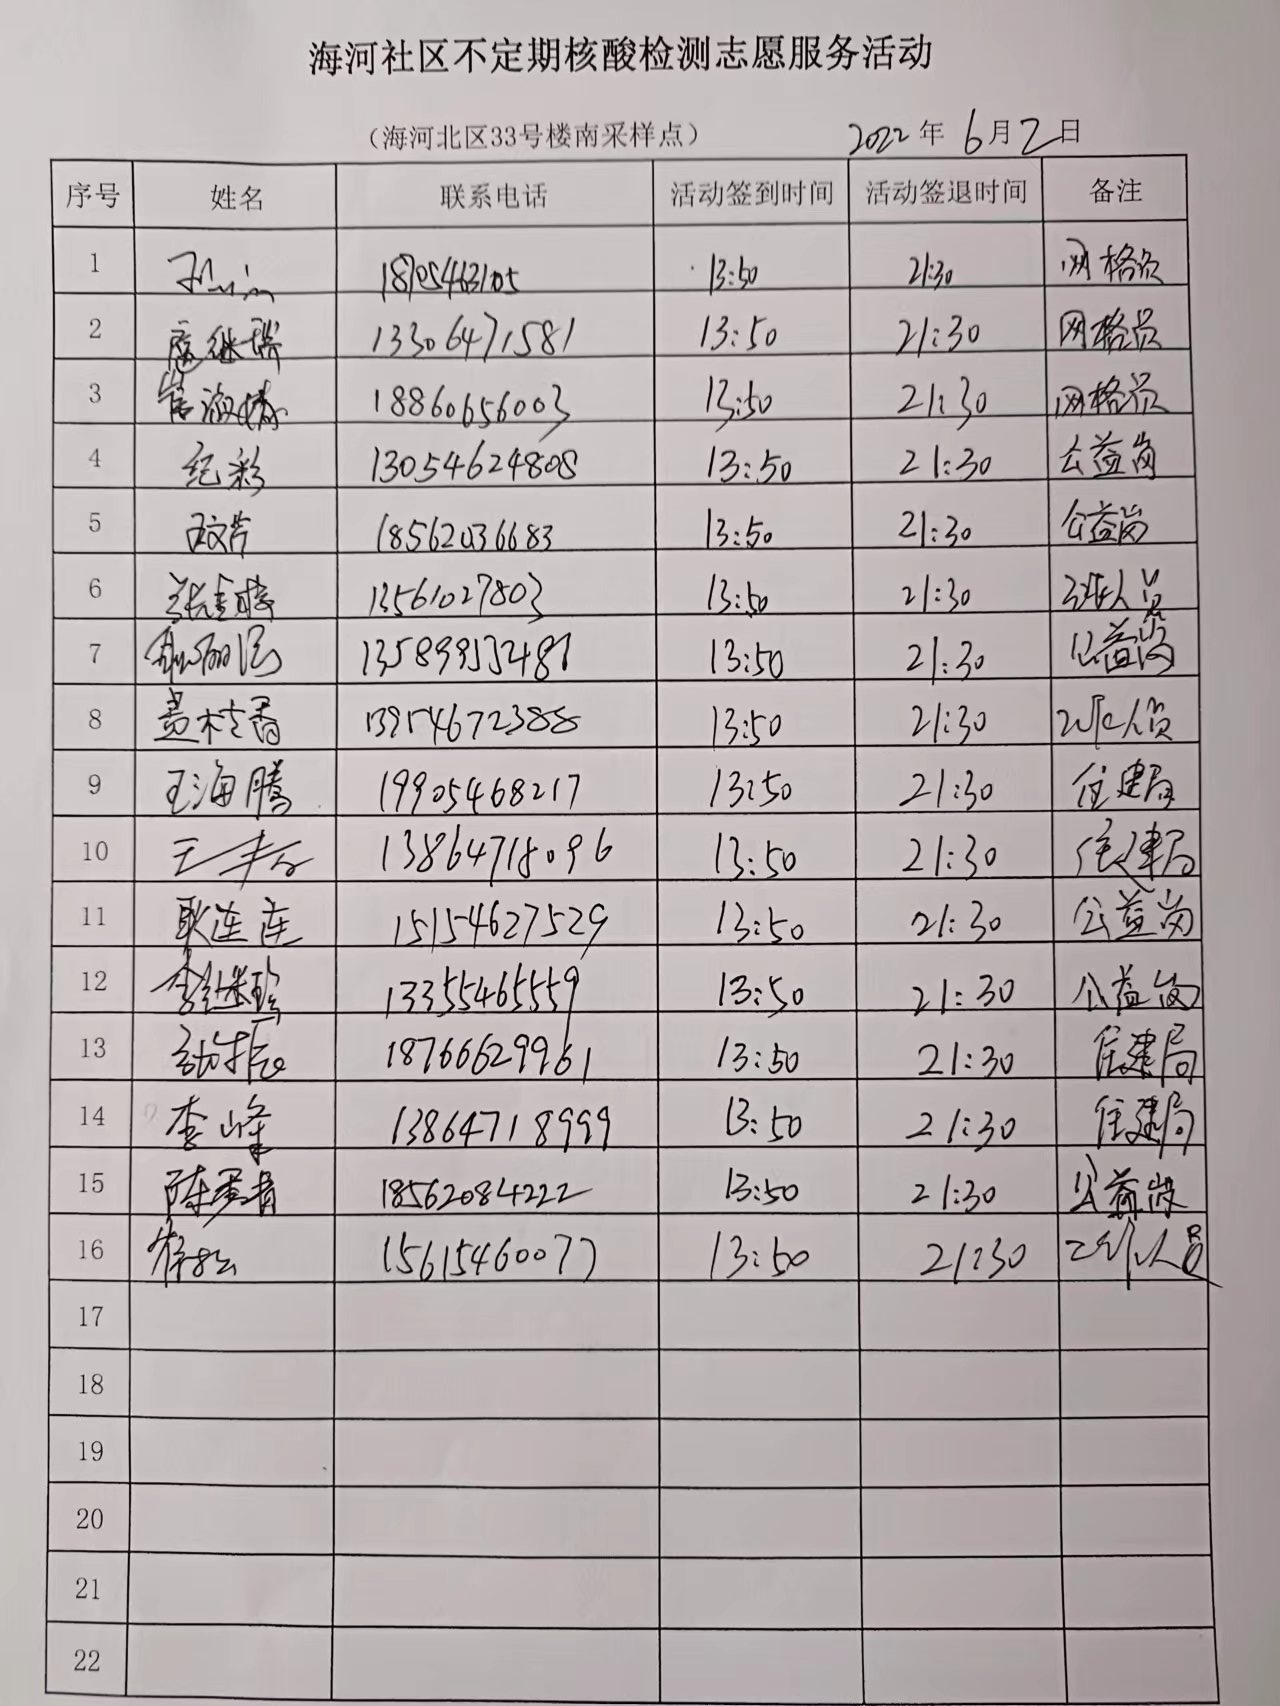 海河社区不定期核酸检测志愿服务活动
（海河北区33号楼南采样点） 2022年6月2日
序号 姓名 联系电话 活动签到时间 活动签退时间 备注
1 13:50 21:30 网格员
2 13306471581 13:50 21:30 网格员
3 18860656003 13:50 21:30 网格员
4 纪彩 13054624808 13:50 21:30 公益岗
5 18562036683 13:50 21:30 公益岗
6 13561027803 13:50 21:30
7 13:50 21:30 公益岗
8 13954672388 13:50 21:30
9 王海腾 19905468217 13:50 21:30 住建局
10 13864718096 13:50 21:30 住建局
11 耿连连 15154627529 13:50 21:30 公益岗
12 13355465559 13:50 21:30 公益岗
13 18766629961 13:50 21:30 住建局
14 李峰 13864718999 13:50 21:30 住建局
15 18562084222 13:50 21:30 公益岗
16 15615460077 13:50 21:30 工作人员
17
18
19
20
21
22